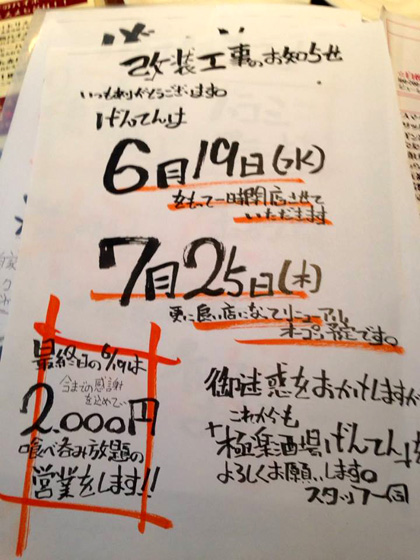 改装工事のお知らせ
いつもありがとうございます。
げんてんは
6月19日(水)
をもって一時閉店させて
いただきます
7月25日(木)
更に良い店になってリニューアル
オープン予定です。
最終日の6/19は
今までの感謝
を込めて…
2.000円
喰べ呑み放題の
営業をします!!
御迷惑をおかけしますが
これからも
極楽酒場げんてんを
よろしくお願いします。
スタッフ一同